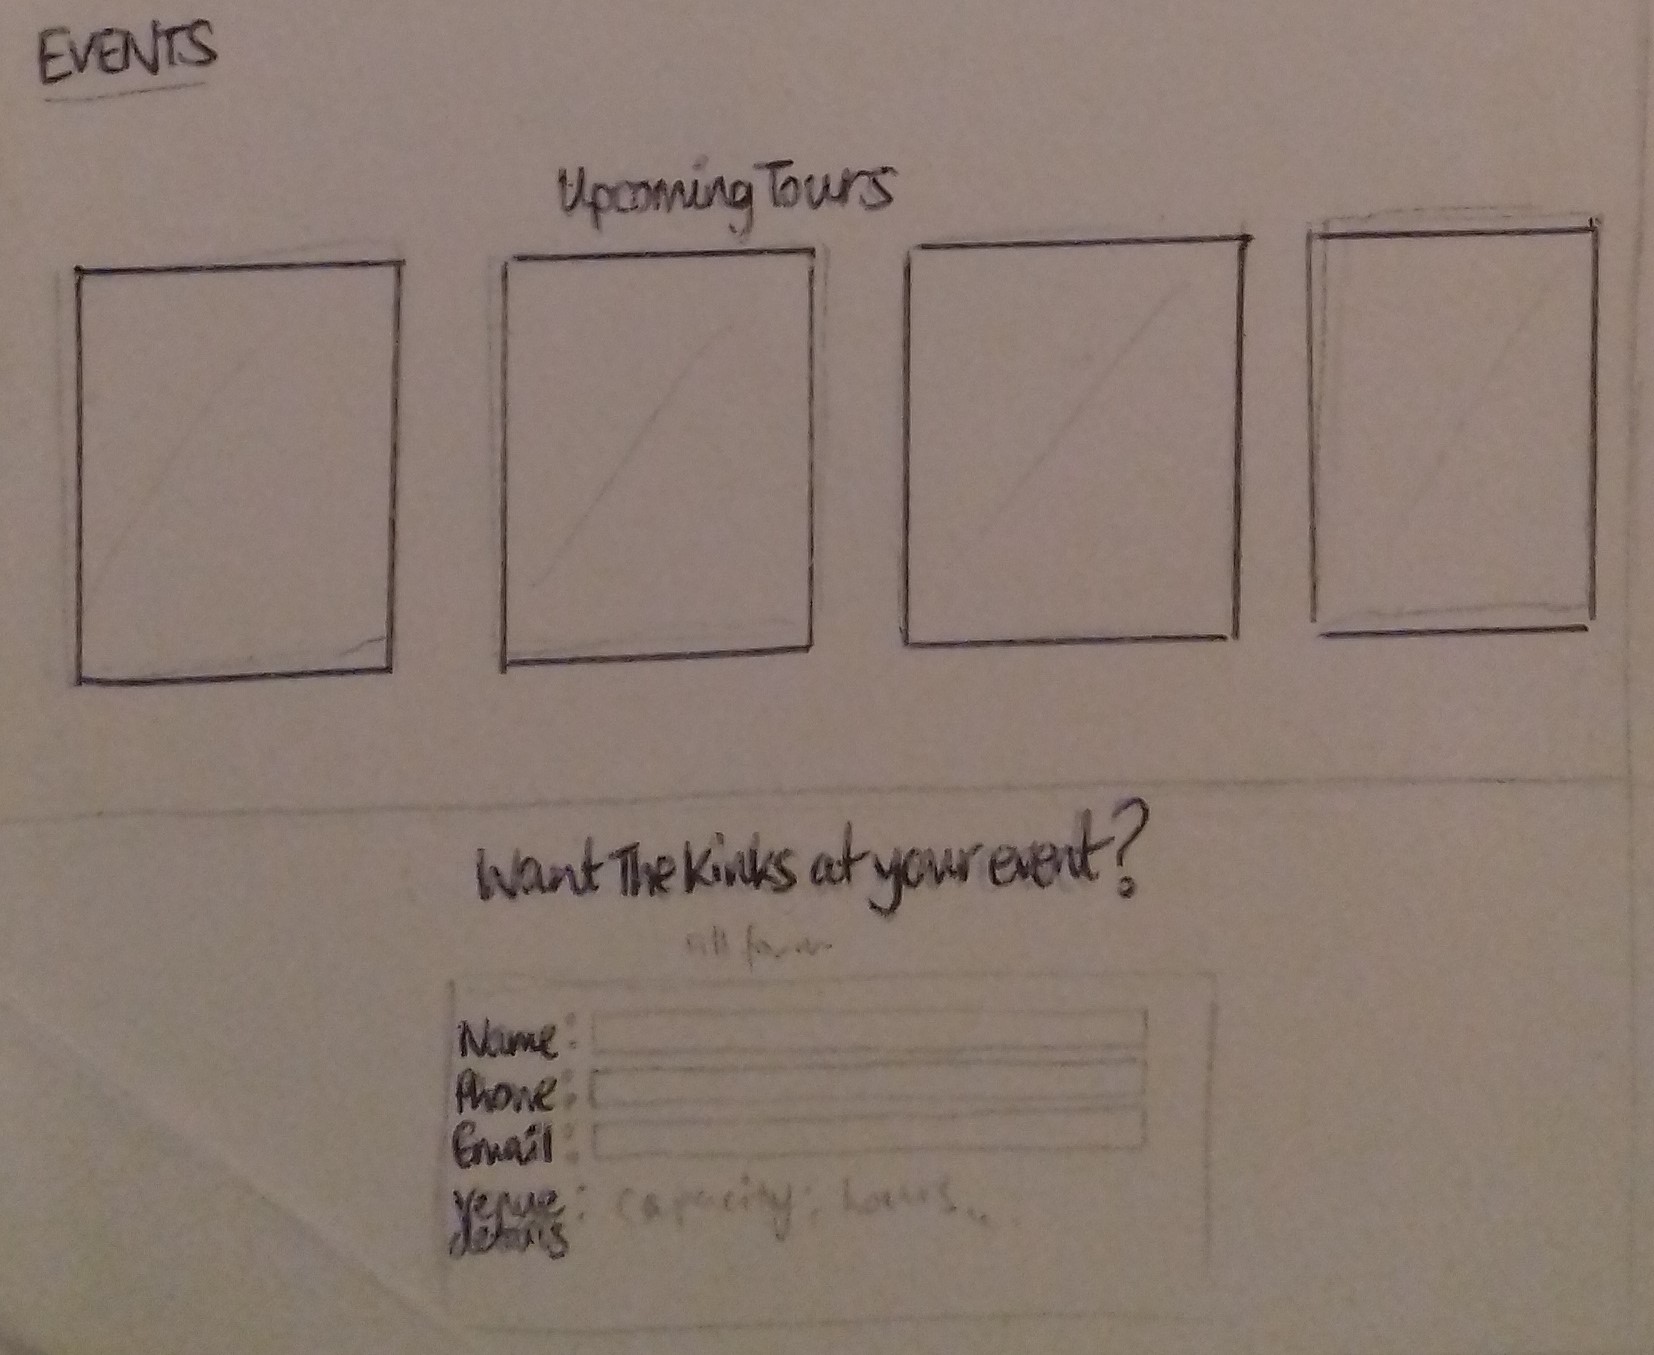 EVENTS
Upcoming Tours
Want The Kinks at your event?
fill form
Name:
Phone:
Email:
Venue : capacity: hours...
details